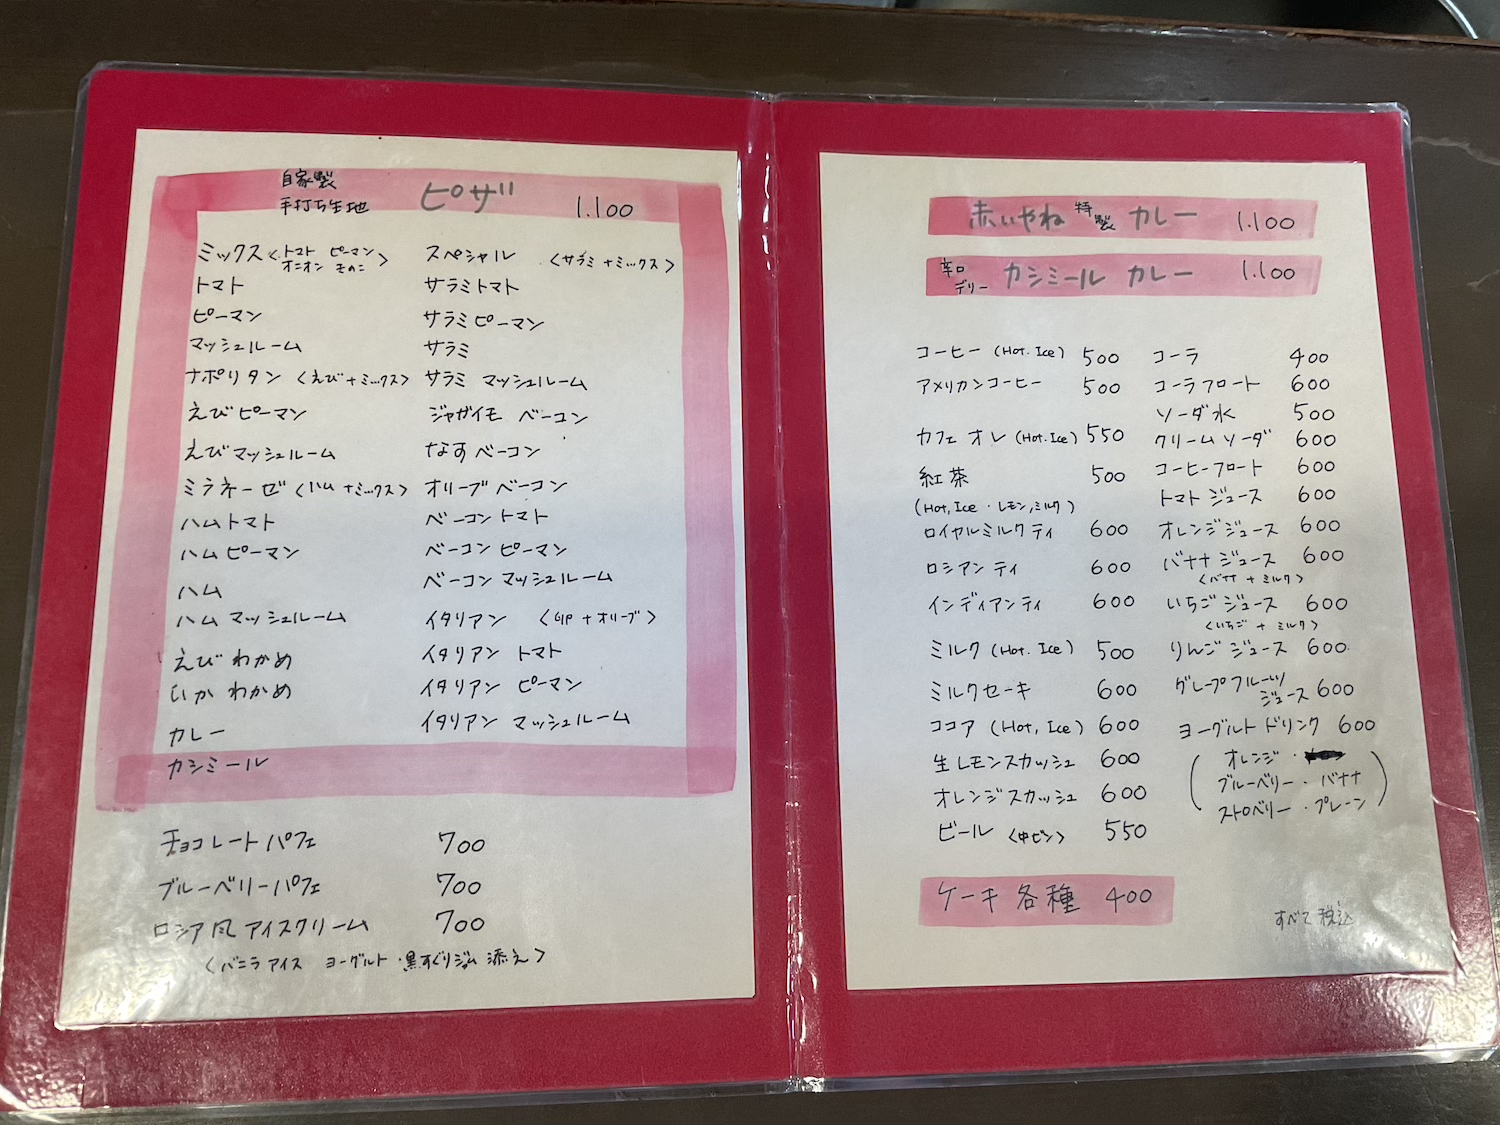 自家製
手打ち生地 ピザ 1.100
ミックス〈トマト ピーマン
オニオン きのこ〉
トマト
ピーマン
マッシュルーム
ナポリタン〈えび+ミックス〉
えびピーマン
えびマッシュルーム
ミラネーゼ〈ハム+ミックス〉
ハムトマト
ハムピーマン
ハム
ハムマッシュルーム
えびわかめ
いかわかめ
カレー
カシミール
スペシャル 〈サラミ+ミックス〉
サラミトマト
サラミピーマン
サラミ
サラミ マッシュルーム
ジャガイモ ベーコン
なすベーコン
オリーブベーコン
ベーコントマト
ベーコンピーマン
ベーコンマッシュルーム
イタリアン 〈 +オリーブ〉
イタリアン トマト
イタリアン ピーマン
イタリアン マッシュルーム
チョコレートパフェ 700
ブルーベリーパフェ 700
ロシア風アイスクリーム 700
〈バニラアイス ヨーグルト・黒すぐりジャム添え〉
赤いやね特製カレー 1.100
辛口デリー カシミールカレー 1.100
コーヒー(Hot.Ice) 500
アメリカンコーヒー 500
カフェオレ(Hot.Ice) 550
紅茶 500
(Hot,Ice・レモン,ミルク)
ロイヤルミルクティ 600
ロシアンティ 600
インディアンティ 600
ミルク(Hot.Ice) 500
ミルクセーキ 600
ココア(Hot,Ice) 600
生レモンスカッシュ 600
オレンジスカッシュ 600
ビール〈中ビン〉 550
コーラ 400
コーラフロート 600
ソーダ水 500
クリームソーダ 600
コーヒーフロート 600
トマトジュース 600
オレンジジュース 600
バナナジュース 600
〈バナナ+ミルク〉
いちごジュース 600
〈いちご+ミルク〉
りんごジュース 600
グレープフルーツ
ジュース 600
ヨーグルトドリンク 600
(オレンジ・
ブルーベリー・バナナ
ストロベリー・プレーン)
ケーキ各種 400
すべて税込